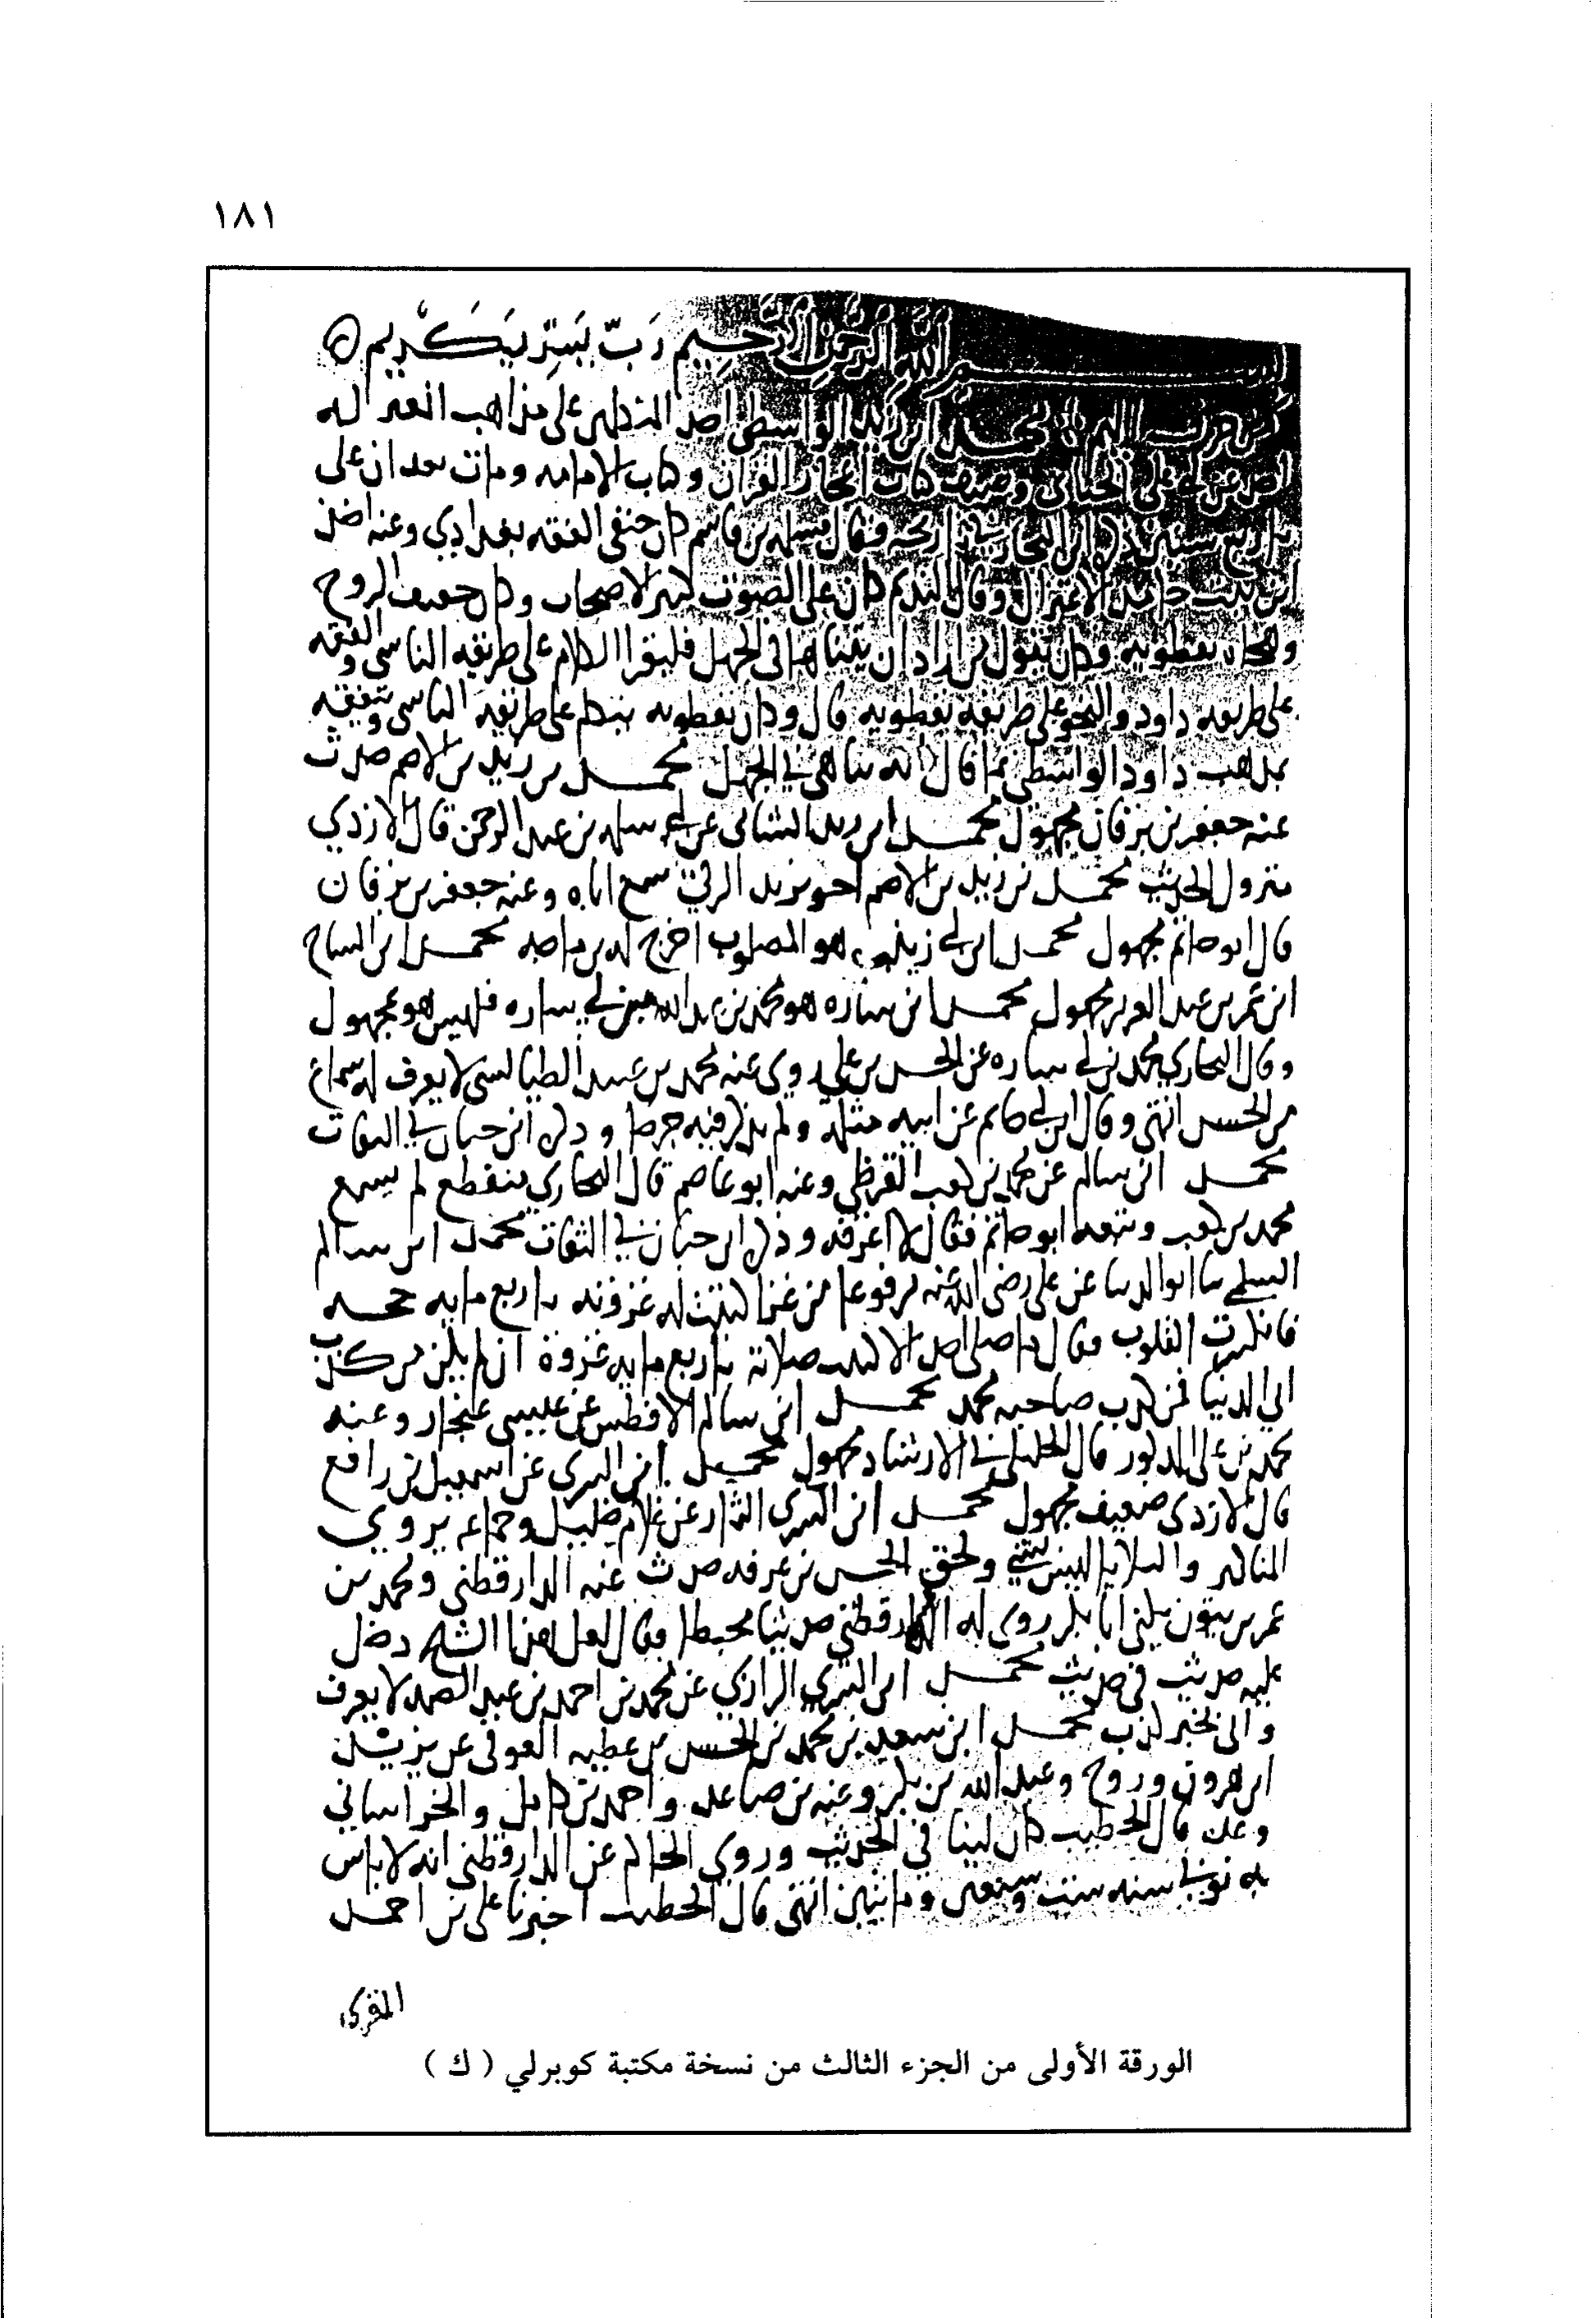 ١٨١
الله الرحمن الرحيم رب يسر يا كريم
محمد بن زيد الواسطي احد المتكلمين على مذاهب المعتزله
اخذ عن ابي علي الجبائي وصنف كتاب اعجاز القران وكتاب الامامه ومات بعد ابي علي
باربع سنين ذكره ابن النجار قال مسلمه بن قاسم كان حنفي الفقه بغدادي وعنه اخذ
الاعتزال وقال النديم كان علي الصوت كثير الاصحاب وكان خفيف الروح
وهجاه نفطويه وكان يقول من اراد ان يتناهى في الجهل فليقرا الكلام على طريقه الناشي والفقه
على طريقه داود والنحو على طريقه نفطويه قال وكان نفطويه يتكلم على طريقه الناشي ويتفقه
بمذهب داود الواسطي فما قال انه تناهى في الجهل محمد بن زيد بن الاصم حدث
عنه جعفر بن برقان مجهول محمد ابن زيد الشامي عن ابي سلمه بن عبد الرحمن قال الازدي
متروك الحديث محمد بن زيد بن الاصم اخو يزيد الرقي سمع اباه وعنه جعفر بن برقان
قال ابو حاتم مجهول محمد ابن ابي زينب هو المصلوب اخرج له بن ماجه محمد ابن الساج
ابن عمر بن عبد العزيز مجهول محمد ابن ساره هو محمد بن عبد الله بن ابي ساره فليس هو مجهول
وقال البخاري محمد بن ابي ساره عن الحسن بن علي روى عنه محمد بن عبيد الطيالسي لا يعرف له سماع
من الحسن انتهى وقال ابن ابي حاتم عن ابيه مثله ولم يذكر فيه جرحا وذكره ابن حبان في الثقات
محمد ابن سالم عن محمد بن كعب القرظي وعنه ابو عاصم قال البخاري منقطع لم يسمع
محمد بن كعب وتبعه ابو حاتم فقال لا اعرفه وذكره ابن حبان في الثقات محمد ابن سالم
السلمي ثنا ابو الدنيا عن علي رضى الله عنه مرفوعا من غزا كتبت له غزوته باربع مايه حجه
فانكسرت القلوب فقال ما صلى احد الا كتبت صلاته باربع مايه غزوة ان لم يكن من كذب
ابي الدنيا فمن كذب صاحبه محمد محمد ابن سالم الافطس عن عيسى غنجار وعنه
محمد بن علي المذكور قال الخليلي في الارشاد مجهول محمد ابن السري عن اسمعيل بن رافع
قال الازدى ضعيف مجهول محمد ابن السري التمار عن غلام خليل وجماعه يروي
المناكير والبلايا ليس بشي ولحق الحسن بن عرفه حدث عنه الدارقطني ومحمد بن
عمر بن زنبور يكنى ابا بكر روى له الدارقطني حديثا مخبطا وقال لعل هذا الشيخ دخل
عليه حديث في حديث محمد ابن السري الرازي عن محمد بن احمد بن عبد الصمد لا يعرف
واتى بخبر كذب محمد ابن سعيد بن محمد بن الحسن بن عطيه العوفي عن يزيد
ابن هرون وروح وعبد الله بن بكر وعنه بن صاعد واحمد بن كامل والخراساني
وعده قال الخطيب كان لينا في الحديث وروي الحاكم عن الدارقطني انه لا باس
به توفي سنه ست وسبعين وماتين انتهى قال الخطيب اخبرنا علي بن احمد
المقرى
الورقة الأولى من الجزء الثالث من نسخة مكتبة كوبرلي ( ك )